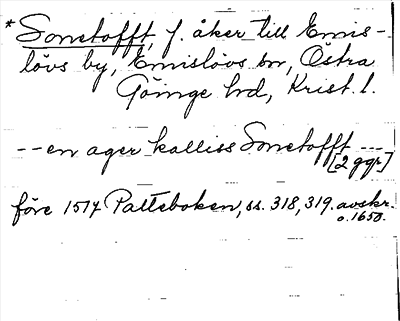 *Sonetofft, f. åker till Emis-
lövs by, Emislövs sn, Östra
Göinge hd, Krist. l.
--en ager kalliss Sonetofft ---
[2 ggr]
före 1514 Palteboken, ss. 318, 319. avskr.
o. 1650.